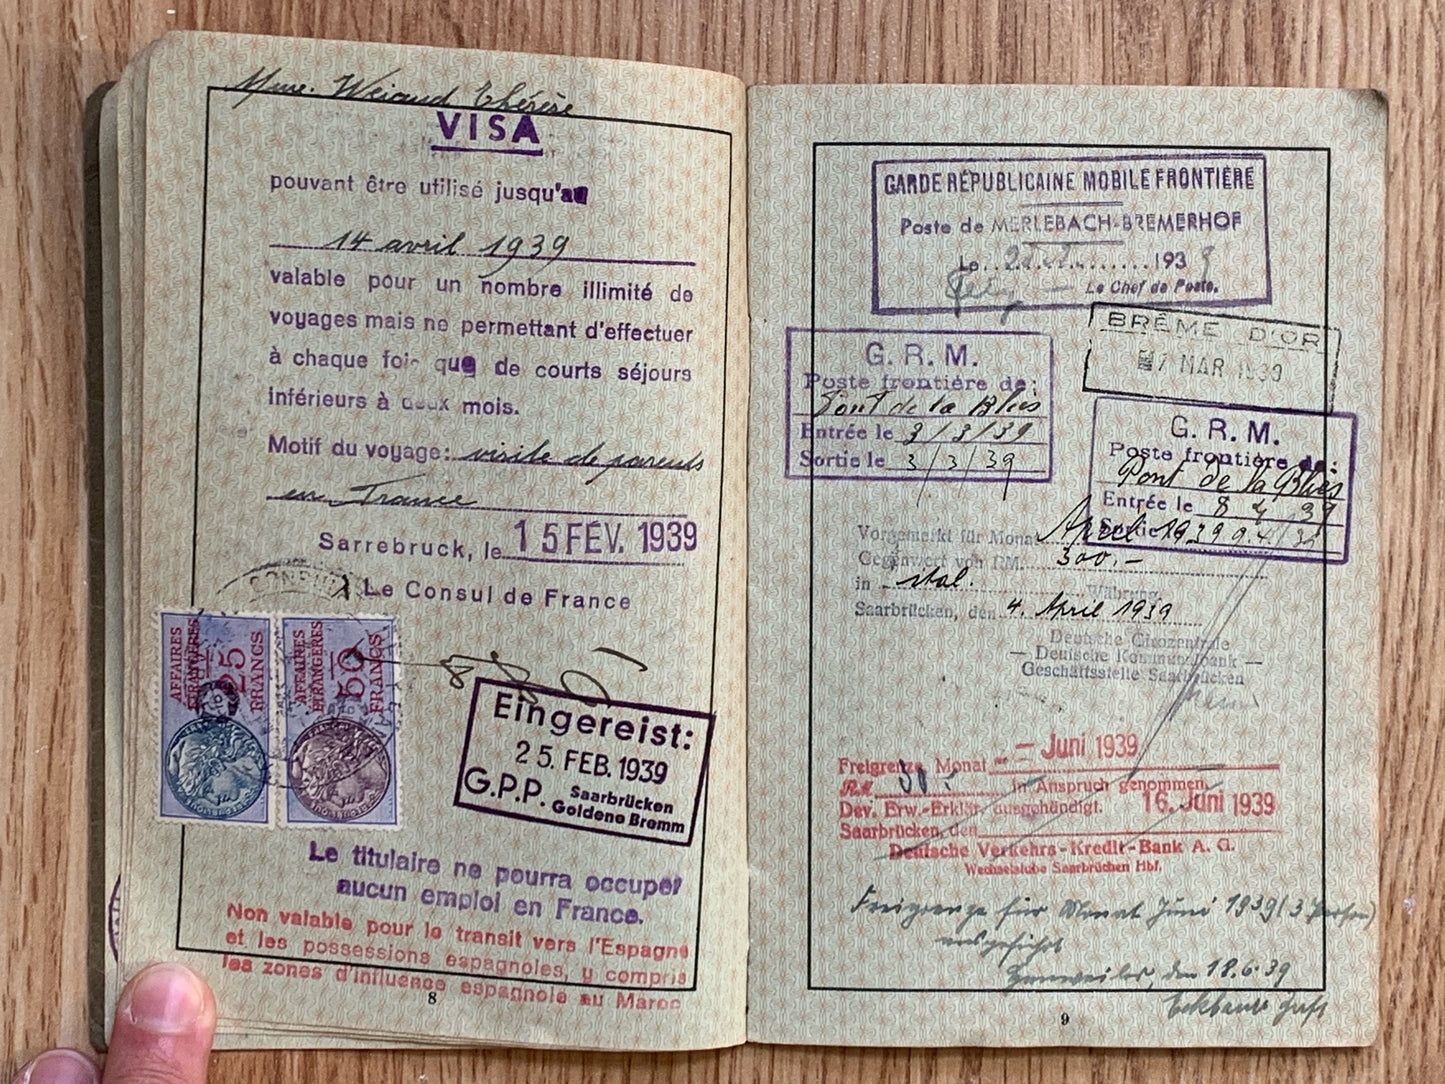 Mme. Weiand Thérèse
VISA
pouvant être utilisé jusqu'au
14 avril 1939
valable pour un nombre illimité de
voyages mais ne permettant d'effectuer
à chaque fois que de courts séjours
inférieurs à deux mois.
Motif du voyage: visite de parents
en France
Sarrebruck, le 15 FÉV. 1939
Le Consul de France
AFFAIRES
ÉTRANGÈRES
25
FRANCS
AFFAIRES
ÉTRANGÈRES
50
FRANCS
Eingereist:
25. FEB. 1939
G.P.P. Saarbrücken
Goldene Bremm
Le titulaire ne pourra occuper
aucun emploi en France.
Non valable pour le transit vers l'Espagne
et les possessions espagnoles, y compris
les zones d'influence espagnole au Maroc
8
GARDE RÉPUBLICAINE MOBILE FRONTIÈRE
Poste de MERLEBACH-BREMERHOF
Le 1939
Le Chef de Poste.
BRÊME D'OR
MAR 1939
G. R. M.
Poste frontière de:
Pont de la Blies
Entrée le 3/3/39
Sortie le 3/3/39
G. R. M.
Poste frontière de:
Pont de la Blies
Entrée le 8 4 39
Sortie 9.4/39
Vorgemerkt für Monat April 1939
Gegenwert von RM. 300.-
in ital. Währung.
Saarbrücken, den 4. April 1939
Deutsche Girozentrale
— Deutsche Kommunalbank —
Geschäftsstelle Saarbrücken
Freigrenze Monat - Juni 1939
RM 30.- in Anspruch genommen.
Dev. Erw.-Erklär. ausgehändigt. 16. Juni 1939
Saarbrücken, den
Deutsche Verkehrs-Kredit-Bank A. G.
Wechselstube Saarbrücken Hbf.
Freigrenze für Monat Juni 1939 (3 Person)
ausgeführt
den 18.6.39
9